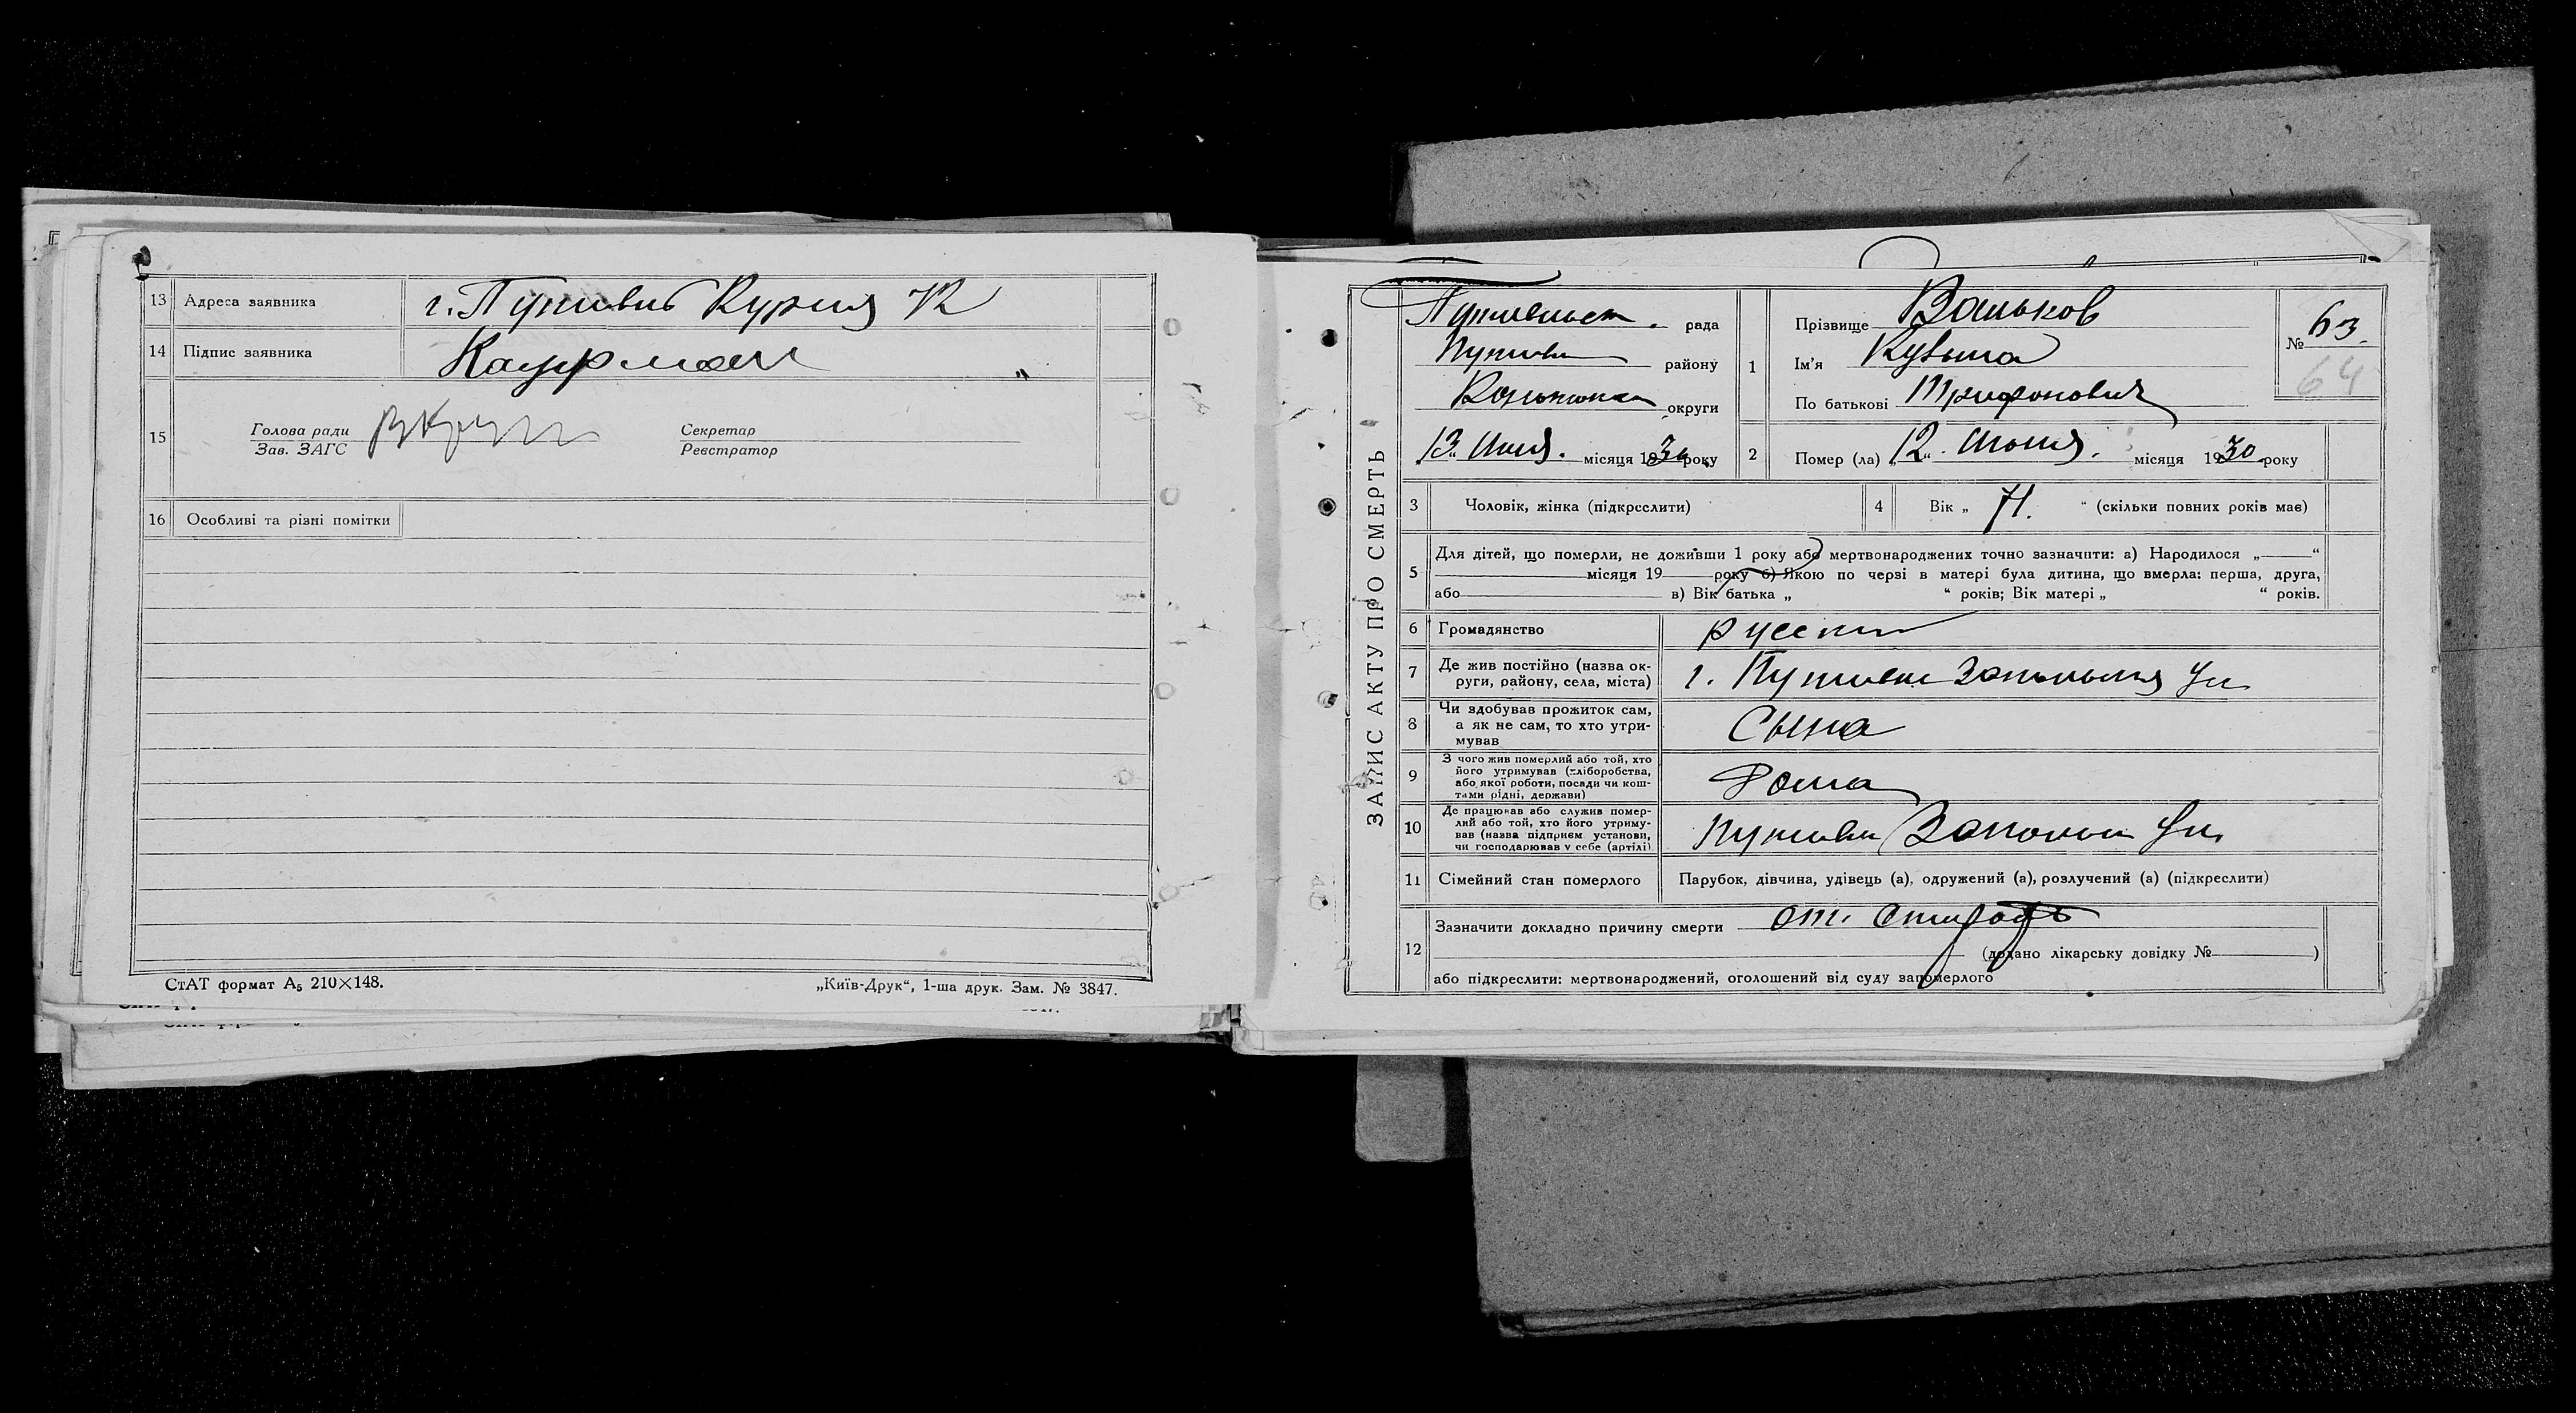 13 Адреса заявника г. Путивль
14 Підпис заявника Кауфман
15 Голова ради
Зав. ЗАГС
Секретар
Реєстратор
16 Особливі та різні помітки
СтАТ формат А₅ 210×148.
„Київ-Друк“, 1-ша друк. Зам. № 3847.
ЗАПИС АКТУ ПРО СМЕРТЬ
рада
району
округи
13 місяця 1930 року
1 Прізвище Ваньков
Ім'я Кузьма
По батькові Трифонович
№ 63.
64
2 Помер (ла) „12“ Июня. місяця 1930 року
3 Чоловік, жінка (підкреслити)
4 Вік „ 71. “ (скільки повних років має)
5 Для дітей, що померли, не доживши 1 року або мертвонароджених точно зазначити: а) Народилося „ “
місяця 19 року б) Якою по черзі в матері була дитина, що вмерла: перша, друга,
або в) Вік батька „ “ років; Вік матері „ “ років.
6 Громадянство русский
7 Де жив постійно (назва ок-
руги, району, села, міста) г. Путивль
8 Чи здобував прожиток сам,
а як не сам, то хто утри-
мував Сына
9 З чого жив померлий або той, хто
його утримував (хліборобства,
або якої роботи, посади чи кош-
тами рідні, держави) Дома
10 Де працював або служив помер-
лий або той, хто його утриму-
вав (назва підприєм. установи,
чи господарював у себе (артілі)
11 Сімейний стан померлого Парубок, дівчина, удівець (а), одружений (а), розлучений (а) (підкреслити)
12 Зазначити докладно причину смерти от
(додано лікарську довідку № )
або підкреслити: мертвонароджений, оголошений від суду запомерлого